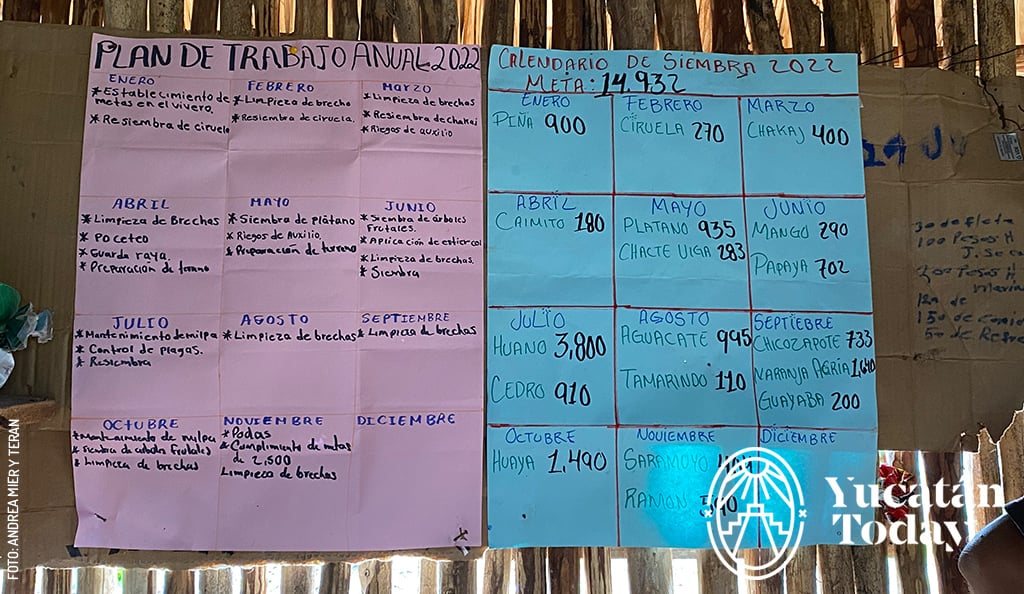 PLAN DE TRABAJO ANUAL 2022
ENERO
* Establecimiento de
metas en el vivero.
* Resiembra de ciruela
FEBRERO
* Limpieza de brecha
* Resiembra de ciruela.
MARZO
* Limpieza de brechas
* Resiembra de chakai
* Riegos de auxilio
ABRIL
* Limpieza de Brechas
* Poceteo
* Guarda raya.
* Preparación de terreno
MAYO
* Siembra de plátano
* Riegos de Auxilio.
* Preparación de terreno
JUNIO
* Siembra de árboles
Frutales.
* Aplicación de estiercol
* Limpieza de brechas.
* Siembra
JULIO
* Mantenimiento de milpa
* Control de plagas.
* Resiembra
AGOSTO
* Limpieza de brechas
SEPTIEMBRE
* Limpieza de brechas
OCTUBRE
* Mantenimiento de milpa
* Siembra de arboles frutales
* Limpieza de brechas
NOVIEMBRE
* Podas
* Cumplimiento de metas
de 2,500
Limpieza de brechas
DICIEMBRE
CALENDARIO DE SIEMBRA 2022
META: 14,932
ENERO
PIÑA 900
FEBRERO
CIRUELA 270
MARZO
CHAKAJ 400
ABRIL
CAIMITO 180
MAYO
PLATANO 935
CHACTE VIGA 283
JUNIO
MANGO 290
PAPAYA 702
JULIO
HUANO 3,800
CEDRO 910
AGOSTO
AGUACATE 995
TAMARINDO 110
SEPTIEBRE
CHICOZAPOTE 733
NARANJA AGRIA 1,640
GUAYABA 200
OCTUBRE
HUAYA 1,490
NOVIEMBRE
SARAMOYO
RAMON
DICIEMBRE
30 de flete
100 Pesos H
200 Pesos H
150 de
50 de
Yucatán
Today
FOTO: ANDREA MIER Y TERAN